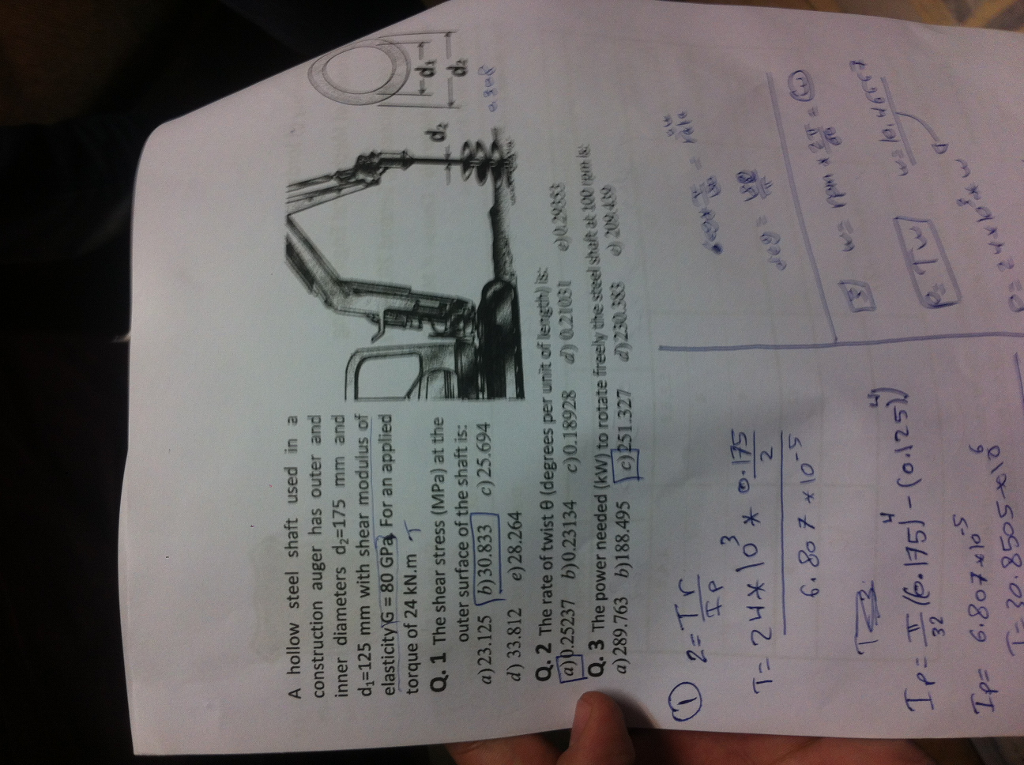 A hollow steel shaft used in a
construction auger has outer and
inner diameters d₂=175 mm and
d₁=125 mm with shear modulus of
elasticity G = 80 GPa. For an applied
torque of 24 kN.m T
d₂
d₁
d₂
Q. 1 The shear stress (MPa) at the
outer surface of the shaft is:
a)23.125 b)30.833 c)25.694
d) 33.812 e)28.264
Q. 2 The rate of twist θ (degrees per unit of length) is:
a)0.25237 b)0.23134 c)0.18928 d) 0.21031 e)0.29383
Q. 3 The power needed (kW) to rotate freely the steel shaft at 100 rpm is:
a)289.763 b)188.495 c)251.327 d)230.383 e) 209.439
① 2 = Tr
IP
T = 24 * 10³ * 0.175
2
6.807 *10⁻⁵
IP = π/32 (0.175)⁴ - (0.125)⁴)
IP = 6.807*10⁻⁵
T = 30.8505*10⁶
deg = 180/π
3 w = rpm * 2π
= w
P = Tw
P = 24*10³ * w